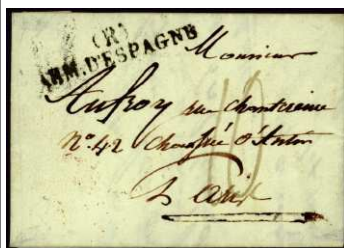 (R)
ARM. D'ESPAGNE
Monsieur
Aufroy rue chantereine
N° 42 Chaussée d'Antin
Paris